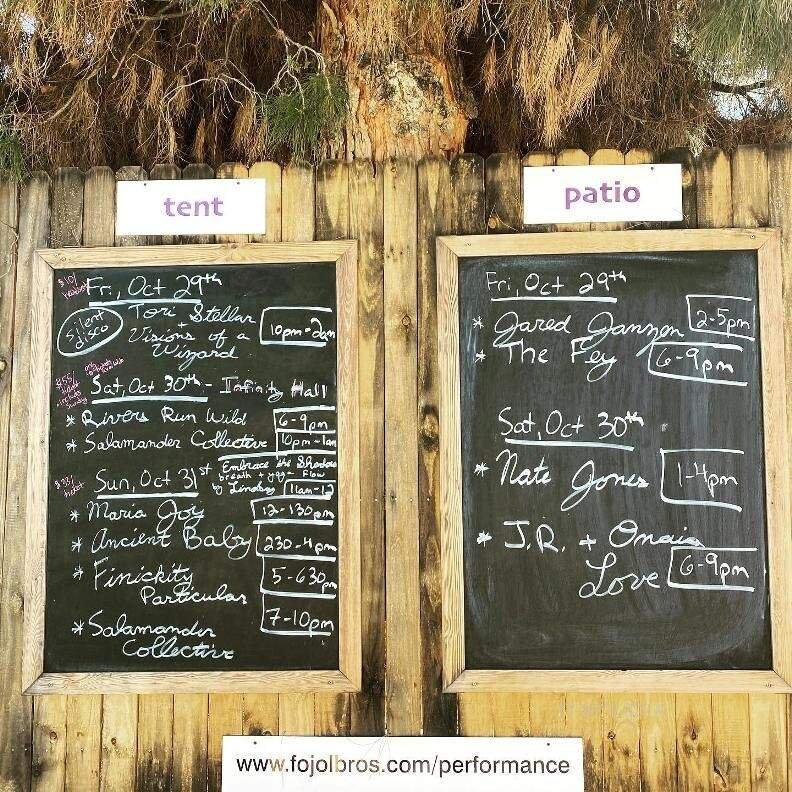 tent
$10/
headset
Fri, Oct 29th
silent
disco
Tori Stellar
+
Visions of a
Wizard
10pm-2am
$55/
ticket
includes
Sunday
Sat, Oct 30th - Infinity Hall
* Rivers Run Wild 6-9pm
* Salamander Collective 10pm-1am
$33/
ticket
Sun, Oct 31st
Embrace the Shadow
breath + yoga flow
by Lindsay 11am-12
* Maria Joy 12-130pm
* Ancient Baby 230-4pm
* Finickity
Particular
5-630pm
* Salamander
Collective
7-10pm
patio
Fri, Oct 29th
* Jared Janzen 2-5pm
* The Fey 6-9pm
Sat, Oct 30th
* Nate Jones 1-4pm
* J.R. + Onaia
Love 6-9pm
www.fojolbros.com/performance